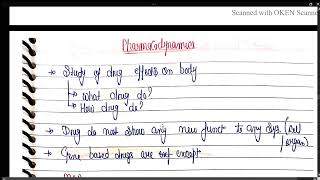 Scanned with OKEN Scanne
Pharmacodynamics
→ Study of drug effects on body
→ What drug do?
→ How drug do?
→ Drug do not show any new funct to any sys. (cell
/organ)
→ Gene based drugs are except